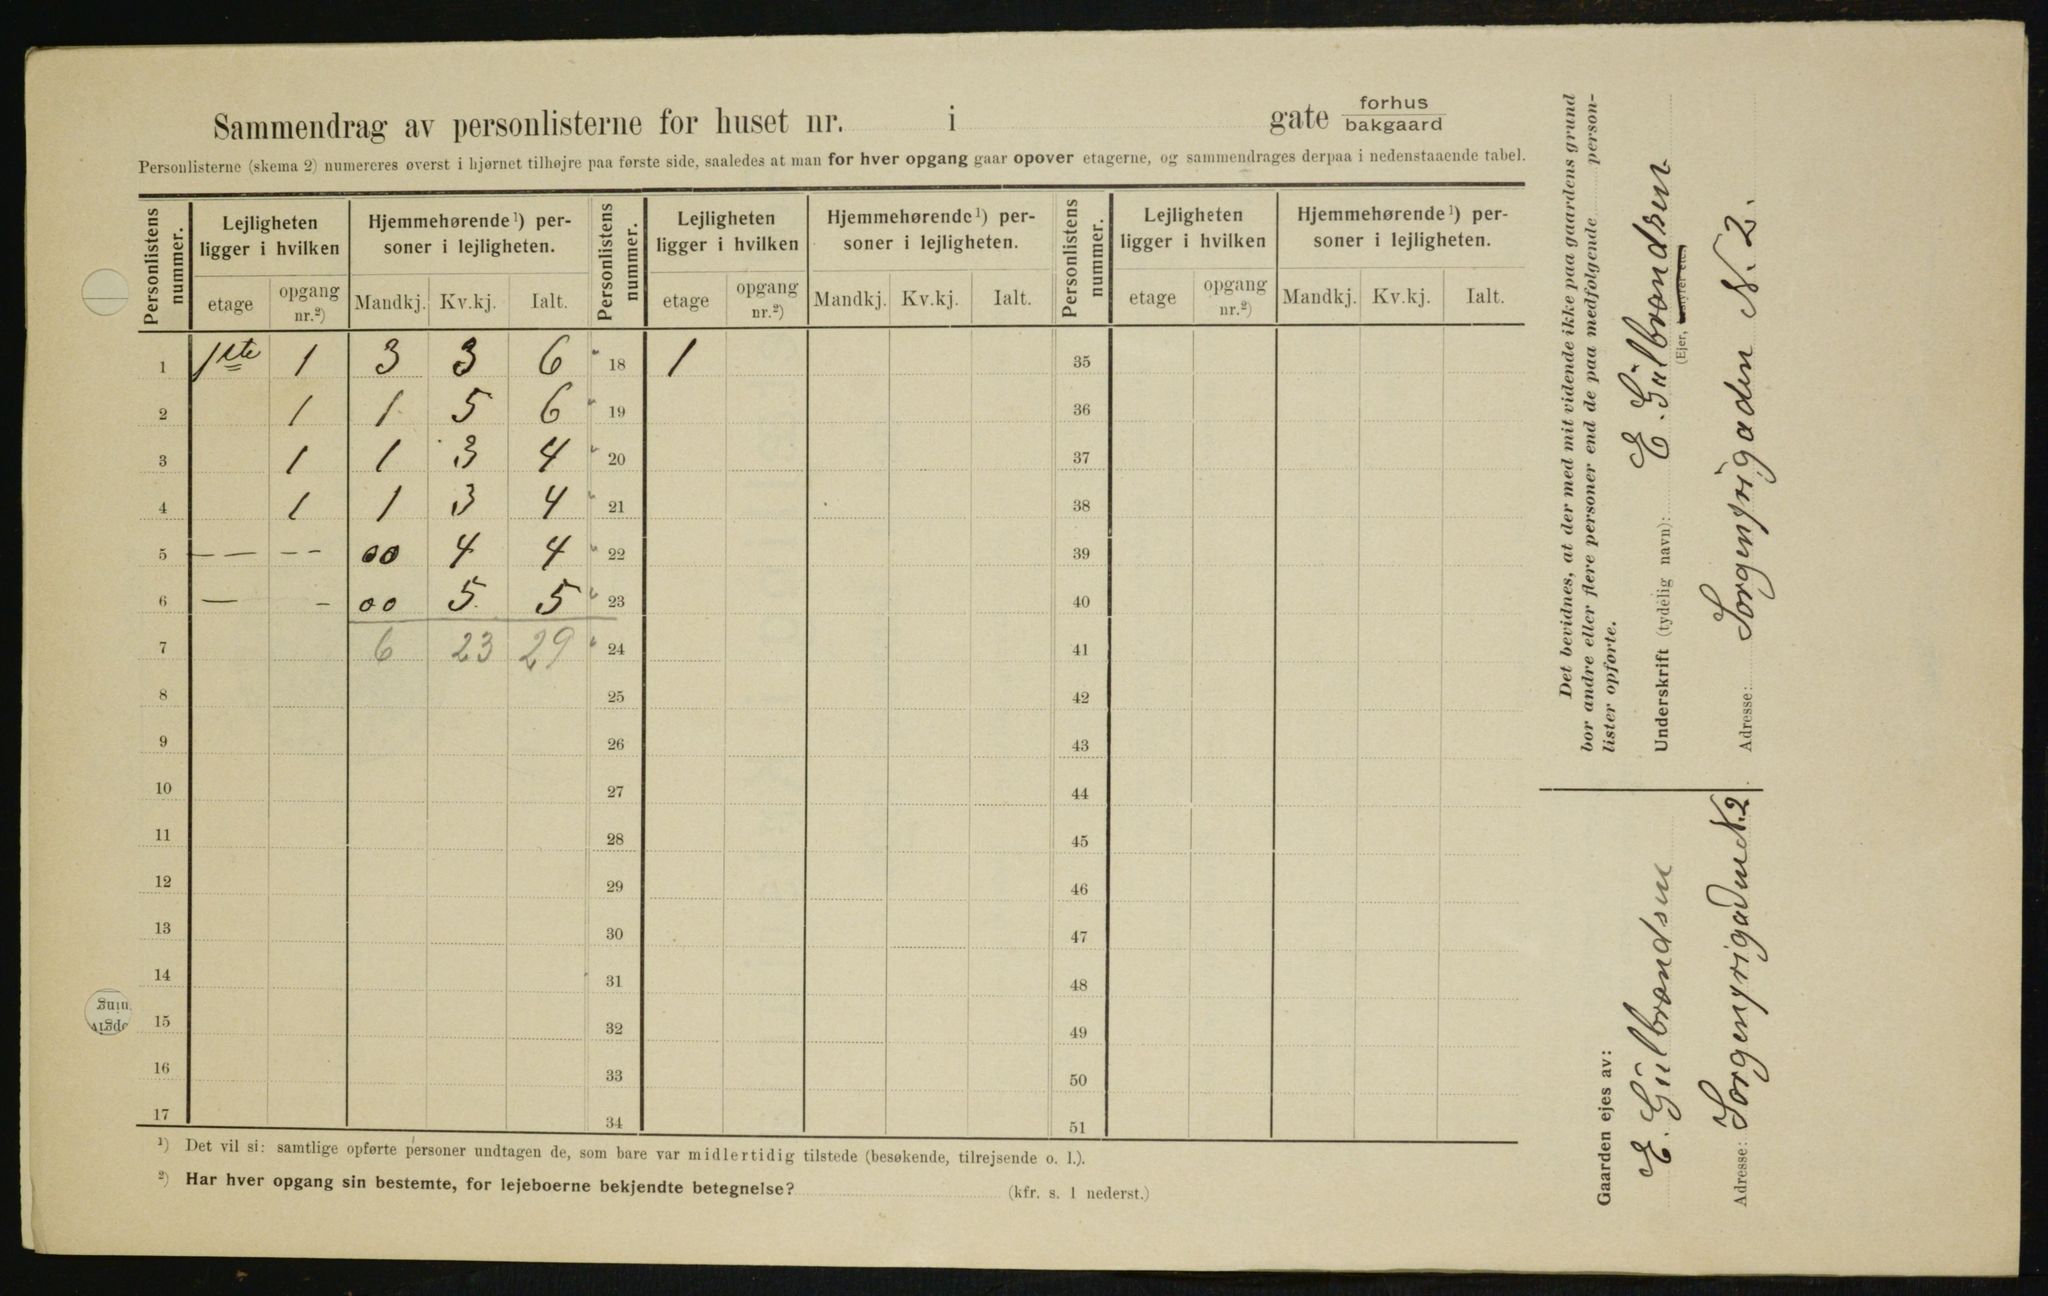 Sammendrag av personlisterne for huset nr. i gate forhus bakgaard
Personlisterne (skema 2) numereres øverst i hjørnet tilhøjre paa første side, saaledes at man for hver opgang gaar opover etagerne, og sammendrages derpaa i nedenstaaende tabel.
Personlistens nummer. Lejligheten ligger i hvilken Hjemmehørende ¹) personer i lejligheten. Personlistens nummer. Lejligheten ligger i hvilken Hjemmehørende ¹) personer i lejligheten. Personlistens nummer. Lejligheten ligger i hvilken Hjemmehørende ¹) personer i lejligheten.
etage opgang nr.²) Mandkj. Kv.kj. Ialt. etage opgang nr.²) Mandkj. Kv.kj. Ialt. etage opgang nr.²) Mandkj. Kv.kj. Ialt.
1 1ste 1 3 3 6 18 1 35
2 1 1 5 6 19 36
3 1 1 3 4 20 37
4 1 1 3 4 21 38
5 — — – – 00 4 4 22 39
6 — – 00 5 5 23 40
7 6 23 29 24 41
8 25 42
9 26 43
10 27 44
11 28 45
12 29 46
13 30 47
14 31 48
15 32 49
16 33 50
17 34 51
¹) Det vil si: samtlige opførte personer undtagen de, som bare var midlertidig tilstede (besøkende, tilrejsende o. l.).
²) Har hver opgang sin bestemte, for lejeboerne bekjendte betegnelse? (kfr. s. 1 nederst.)
Det bevidnes, at der med mit vidende ikke paa gaardens grund
bor andre eller flere personer end de paa medfølgende person-
lister opførte.
Underskrift (tydelig navn): E. Gülbrandsen
(Ejer,
Adresse: Sorgenfrigaden N. 2.
Gaarden ejes av:
E. Gülbrandsen
Adresse: Sorgenfrigaden N. 2